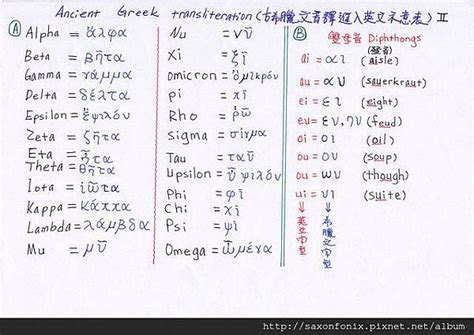 Ancient Greek transliteration(古希臘文音譯進入英文示意表) II
A
Alpha = ἄλφα
Beta = βῆτα
Gamma = γάμμα
Delta = δέλτα
Epsilon = ἒψιλόν
Zeta = ζῆτα
Eta = ἦτα
Theta = θῆτα
Iota = ἰῶτα
Kappa = κάππα
Lambda = λάμβδα
Mu = μῦ
Nu = νῦ
Xi = ξῖ
Omicron = ὂμῑκρόν
pi = πῖ
Rho = ῥῶ
Sigma = σίγμα
Tau = ταῦ
Upsilon = ὖ ψιλόν
Phi = φῖ
Chi = χῖ
Psi = ψῖ
Omega = ὦμέγα
B 雙母音 Diphthongs
(發音)
ai = αι (aisle)
au = αυ (sauerkraut)
ei = ει (eight)
eu = ευ, ηυ (feud)
oi = οι (oil)
ou = ου (soup)
ou = ωυ (though)
ui = υι (suite)
↓ ↓
英文字型
希臘文字型
http://saxonfonix.pixnet.net/album